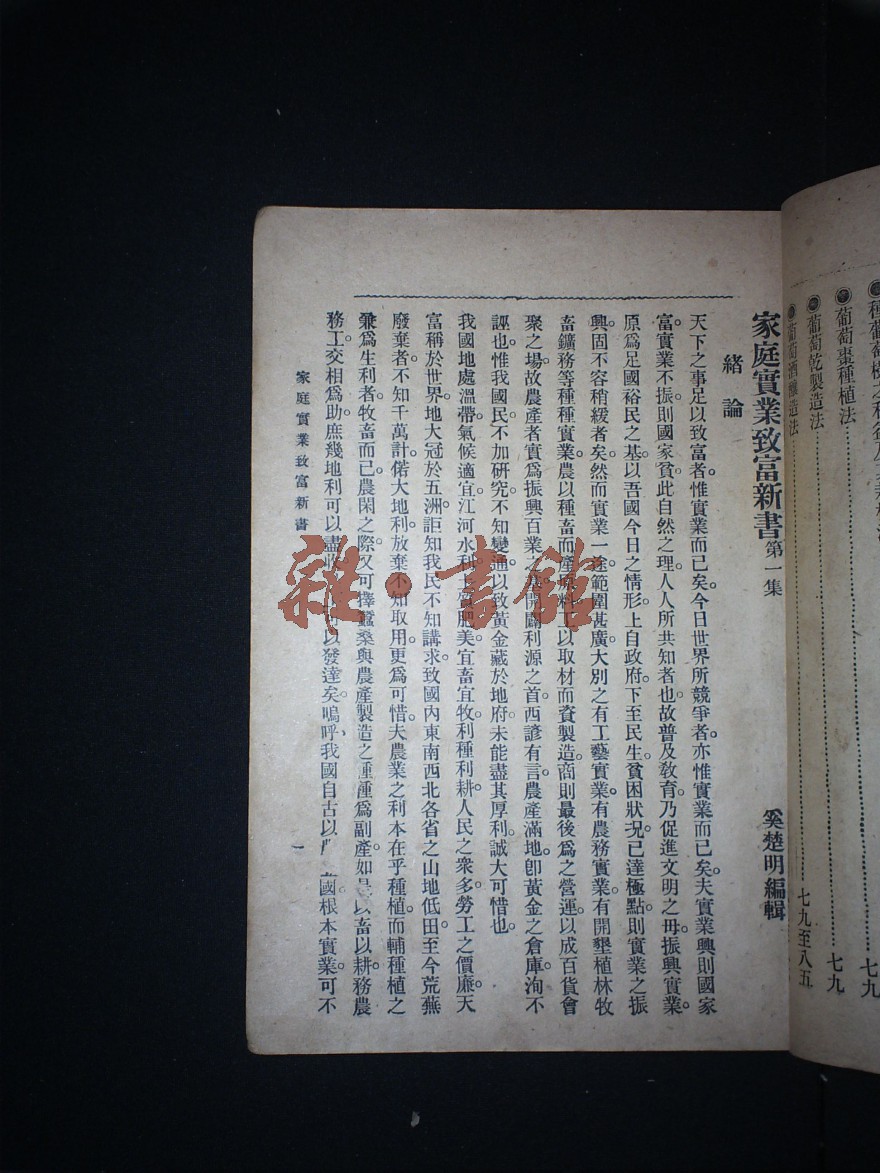 葡萄棗種植法 七九
葡萄乾製造法 七九
葡萄酒釀造法 七九至八五
家庭實業致富新書 第一集
奚楚明編輯
緒論
天下之事足以致富者惟實業而已矣。今日世界所競爭者。亦惟實業而已矣。夫實業興則國家
富。實業不振則國家貧。此自然之理。人人所共知者也。故普及敎育。乃促進文明之母。振興實業。
原爲足國裕民之基。以吾國今日之情形。上自政府。下至民生。貧困狀況。已達極點。則實業之振
興。固不容稍緩者矣。然而實業一途。範圍甚廣。大別之有工藝實業。有農務實業。有開墾植林牧
畜鑛務等種種實業。農以種畜而產原料。工以取材而資製造。商則最後爲之營運。以成百貨會
聚之場。故農產者。實爲振興百業之基。開闢利源之首。西諺有言。農產滿地。卽黃金之倉庫。洵不
誣也。惟我國民。不加硏究。不知變通。以致黃金藏於地府。未能盡其厚利。誠大可惜也。
我國地處溫帶。氣候適宜。江河水利。土質肥美。宜畜宜牧。利種利耕。人民之衆多。勞工之價廉。天
富稱於世界。地大冠於五洲。詎知我民不知講求。致國內東南西北各省之山地低田。至今荒蕪
廢棄者。不知千萬計。偌大地利。放棄不知取用。更爲可惜。夫農業之利。本在乎種植。而輔種植之
兼爲生利者。牧畜而已。農閑之際。又可擇蠶桑與農產製造之種種爲副產。如是以畜以耕。務農
務工。交相爲助。庶幾地利可以盡收 可以發達矣。嗚呼、我國自古以 立國根本實業。可不
家庭實業致富新書
一
雜·書館